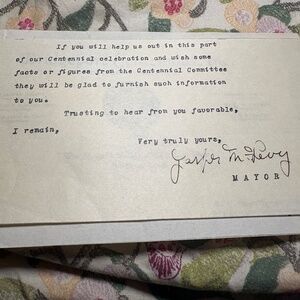 If you will help us out in this part
of our Centennial celebration and wish some
facts or figures from the Centennial Committee
they will be glad to furnish such information
to you.
Trusting to hear from you favorable,
I remain,
Very truly yours,
Jasper McLevy
MAYOR